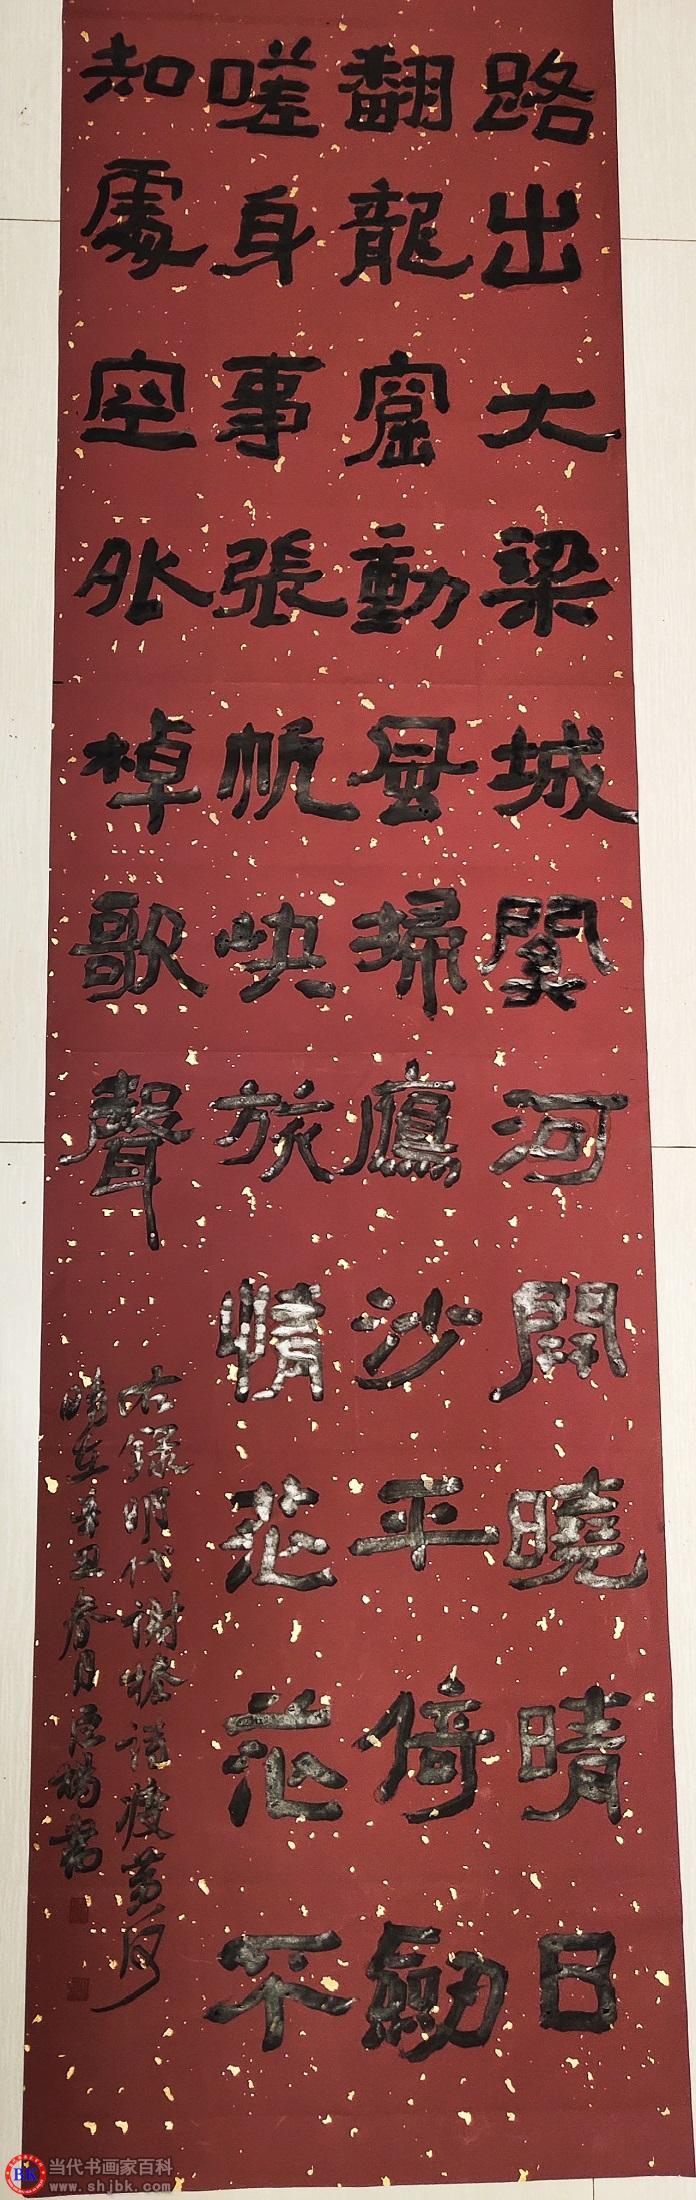 路出大梁城関河開曉晴日
翻龍窟動風掃鴈沙平倚劒
嗟身事張帆快旅情茫茫不
知處空外棹歌聲
右録明代謝榛詩渡黄河
時在辛丑春月書
BK
当代书画家百科
www.shjbk.com